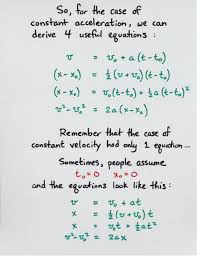 So, for the case of
constant acceleration, we can
derive 4 useful equations :
v = v₀ + a (t - t₀)
(x - x₀) = ½ (v + v₀) (t - t₀)
(x - x₀) = v₀(t - t₀) + ½ a(t - t₀)²
v² - v₀² = 2a (x - x₀)
Remember that the case of
constant velocity had only 1 equation ...
Sometimes, people assume
t₀ = 0 x₀ = 0
and the equations look like this :
v = v₀ + at
x = ½ (v + v₀) t
x = v₀t + ½ at²
v² - v₀² = 2ax